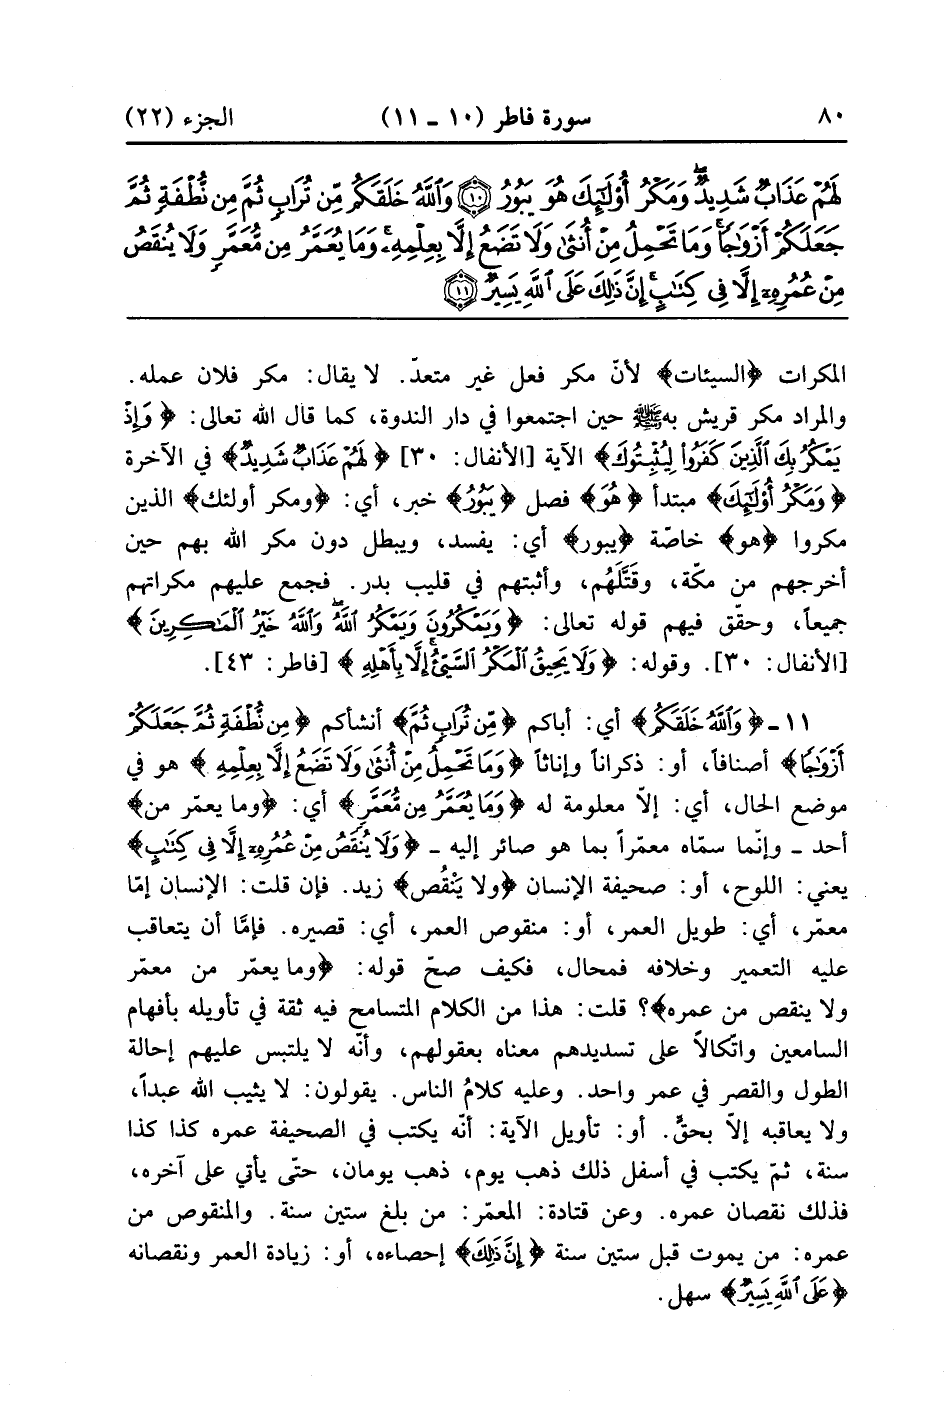 ٨٠ سورة فاطر (١٠ ـ ١١) الجزء (٢٢)
لَهُمْ عَذَابٌ شَدِيدٌ ۖ وَمَكْرُ أُوْلَٰٓئِكَ هُوَ يَبُورُ ﴿١٠﴾ وَٱللَّهُ خَلَقَكُم مِّن تُرَابٍ ثُمَّ مِن نُّطْفَةٍ ثُمَّ
جَعَلَكُمْ أَزْوَٰجًا ۚ وَمَا تَحْمِلُ مِنْ أُنثَىٰ وَلَا تَضَعُ إِلَّا بِعِلْمِهِۦ ۚ وَمَا يُعَمَّرُ مِن مُّعَمَّرٍ وَلَا يُنقَصُ
مِنْ عُمُرِهِۦٓ إِلَّا فِى كِتَٰبٍ ۚ إِنَّ ذَٰلِكَ عَلَى ٱللَّهِ يَسِيرٌ ﴿١١﴾
المكرات ﴿السيئات﴾ لأنّ مكر فعل غير متعدّ. لا يقال: مكر فلان عمله.
والمراد مكر قريش به ﷺ حين اجتمعوا في دار الندوة، كما قال الله تعالى: ﴿ وَإِذْ
يَمْكُرُ بِكَ ٱلَّذِينَ كَفَرُوا۟ لِيُثْبِتُوكَ﴾ الآية [الأنفال: ٣٠] ﴿ لَهُمْ عَذَابٌ شَدِيدٌ﴾ في الآخرة
﴿ وَمَكْرُ أُوْلَٰٓئِكَ﴾ مبتدأ ﴿ هُوَ﴾ فصل ﴿ يَبُورُ﴾ خبر، أي: ﴿ومكر أولئك﴾ الذين
مكروا ﴿هو﴾ خاصّة ﴿يبور﴾ أي: يفسد، ويبطل دون مكر الله بهم حين
أخرجهم من مكّة، وقَتَّلَهُم، وأثبتهم في قليب بدر. فجمع عليهم مكراتهم
جميعاً، وحقّق فيهم قوله تعالى: ﴿ وَيَمْكُرُونَ وَيَمْكُرُ ٱللَّهُ ۖ وَٱللَّهُ خَيْرُ ٱلْمَٰكِرِينَ ﴾
[الأنفال: ٣٠]. وقوله: ﴿ وَلَا يَحِيقُ ٱلْمَكْرُ ٱلسَّيِّئُ إِلَّا بِأَهْلِهِۦ ۚ ﴾ [فاطر: ٤٣].
١١ ـ ﴿ وَٱللَّهُ خَلَقَكُم﴾ أي: أباكم ﴿ مِّن تُرَابٍ ثُمَّ﴾ أنشأكم ﴿ مِن نُّطْفَةٍ ثُمَّ جَعَلَكُمْ
أَزْوَٰجًا﴾ أصنافاً، أو: ذكراناً وإناثاً ﴿ وَمَا تَحْمِلُ مِنْ أُنثَىٰ وَلَا تَضَعُ إِلَّا بِعِلْمِهِۦ ﴾ هو في
موضع الحال، أي: إلاّ معلومة له ﴿ وَمَا يُعَمَّرُ مِن مُّعَمَّرٍ﴾ أي: ﴿وما يعمّر من﴾
أحد ـ وإنّما سمّاه معمّراً بما هو صائر إليه ـ ﴿ وَلَا يُنقَصُ مِنْ عُمُرِهِۦٓ إِلَّا فِى كِتَٰبٍ﴾
يعني: اللوح، أو: صحيفة الإنسان ﴿ولا يَنْقُص﴾ زيد. فإن قلت: الإنسان إمّا
معمّر، أي: طويل العمر، أو: منقوص العمر، أي: قصيره. فإمَّا أن يتعاقب
عليه التعمير وخلافه فمحال، فكيف صحّ قوله: ﴿وما يعمّر من معمّر
ولا ينقص من عمره﴾؟ قلت: هذا من الكلام المتسامح فيه ثقة في تأويله بأفهام
السامعين واتّكالاً على تسديدهم معناه بعقولهم، وأنّه لا يلتبس عليهم إحالة
الطول والقصر في عمر واحد. وعليه كلامُ الناس. يقولون: لا يثيب الله عبداً،
ولا يعاقبه إلاّ بحقٍّ. أو: تأويل الآية: أنّه يكتب في الصحيفة عمره كذا كذا
سنة، ثمّ يكتب في أسفل ذلك ذهب يوم، ذهب يومان، حتّى يأتي على آخره،
فذلك نقصان عمره. وعن قتادة: المعمّر: من بلغ ستين سنة. والمنقوص من
عمره: من يموت قبل ستين سنة ﴿ إِنَّ ذَٰلِكَ﴾ إحصاءه، أو: زيادة العمر ونقصانه
﴿ عَلَى ٱللَّهِ يَسِيرٌ﴾ سهل.